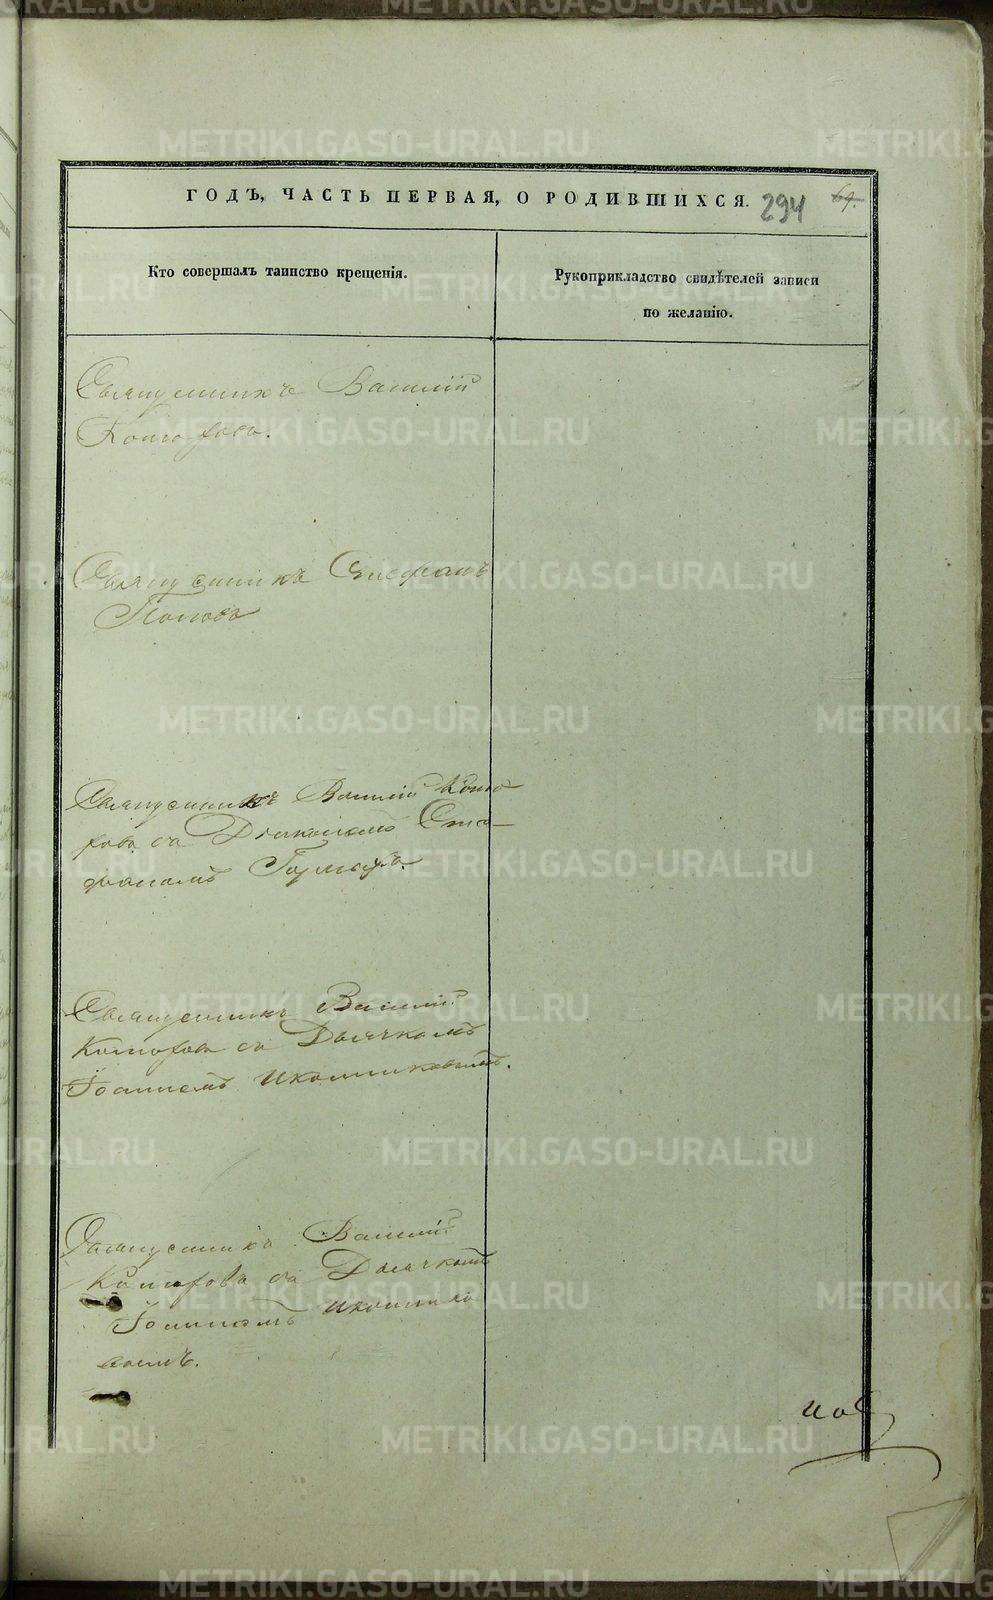 ГОДЪ, ЧАСТЬ ПЕРВАЯ, О РОДИВШИХСЯ. 294 69.
Кто совершалъ таинство крещенія.
Рукоприкладство свидѣтелей записи
по желанію.
Священникъ Василій
Священникъ Стефанъ
Поповъ
Священникъ Василій
съ Дьякономъ Сте-
фаномъ
Священникъ Василій
съ Дьячкомъ
Іоанномъ Иконниковымъ.
Священникъ Василій
съ Дьячкомъ
Іоанномъ Иконнико
вымъ.
METRIKI.GASO-URAL.RU